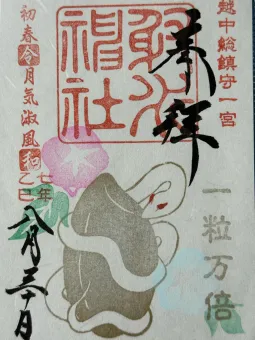 越中総鎮守一宮
奉拝
射水
神社
初春令月気淑風和
乙巳
七年
八月三十日
一粒万倍